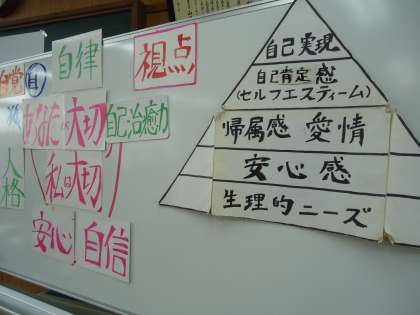 自覚
自律
視点
あなたが大切
自己治癒力
私は大切
人格
安心
自信
自己実現
自己肯定感
(セルフエスティーム)
帰属感 愛情
安心感
生理的ニーズ